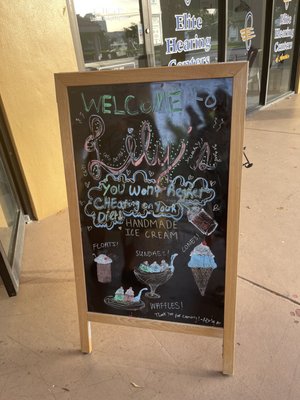 Elite
Hearing
Centers
Elite
Hearing
Centers
WELCOME TO
Lilly's
YOU Won't Regret
CHEating on Your
Diet
HANDMADE
ICE CREAM
FLOATS!
SUNDAES!
CONES!
WAFFLES!